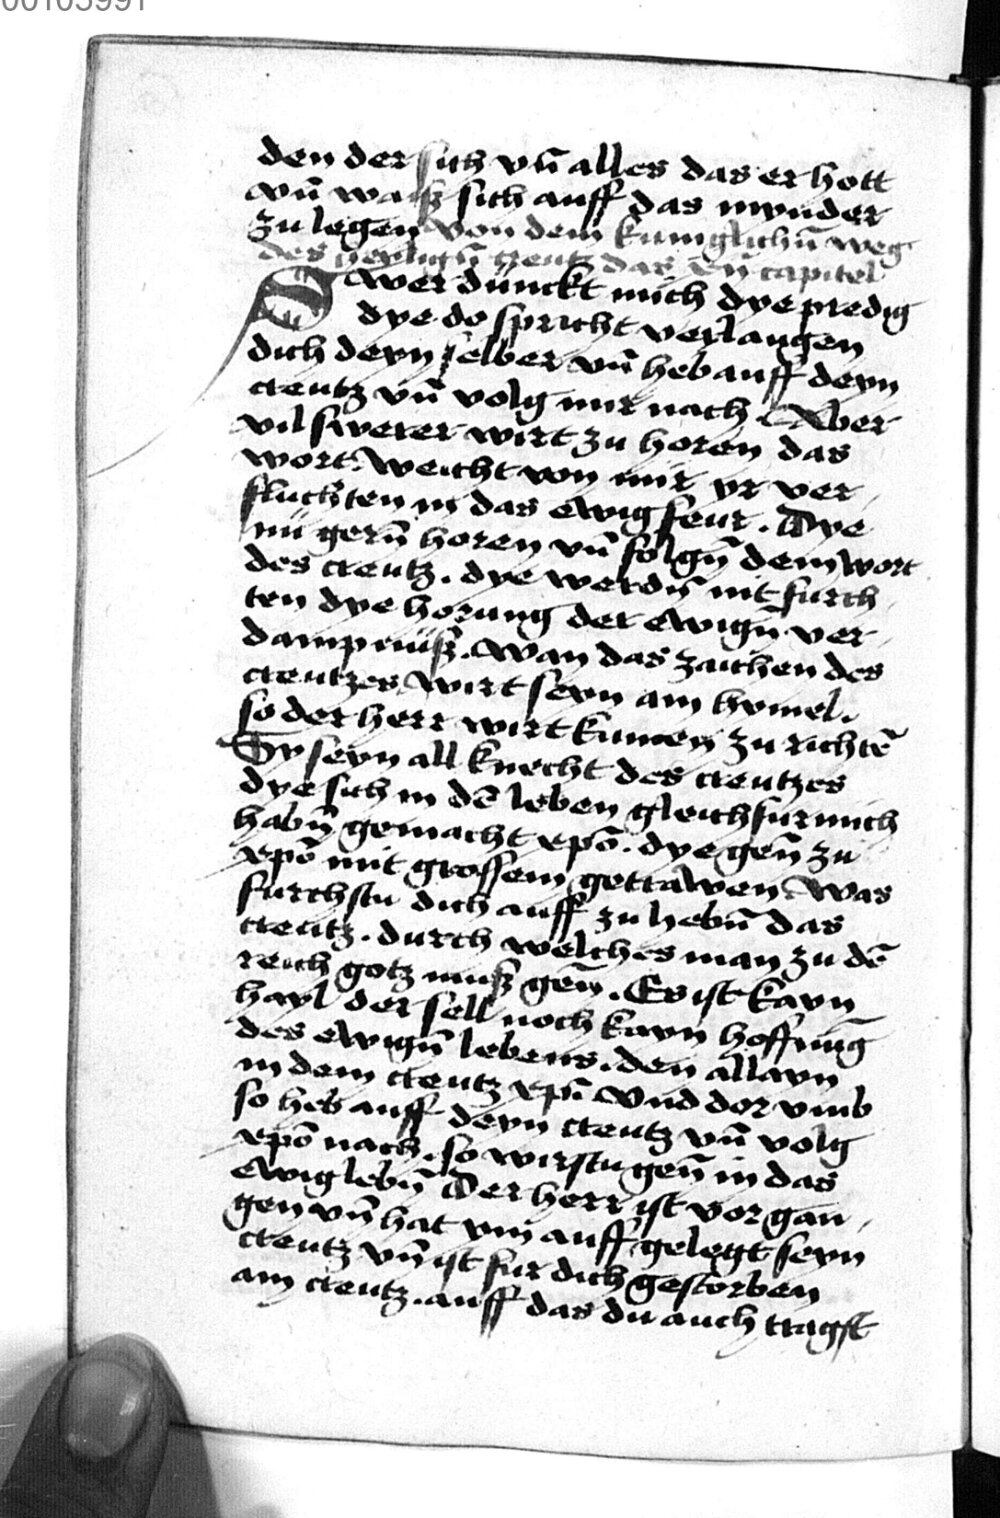 00103991
den der sich vn̄ alles das er hott
vn̄ waisz sich auff das mynder
zu legen Von dem kuniglichn̄ weg
des heylign̄ creutz das capitel
Swer dunckt mich dye predig
dye do spricht verlaugen
dich deyn selber vn̄ heb auff deyn
creutz vn̄ volg mir nach. Aber
vil swerer wirt zu horen das
wort. Weicht von mir yr ver
fluchten in das ewig feur. Dye
nu gern̄ horen vn̄ folgn̄ dem wort
des creutz. dye werdn̄ nit furch
ten dye horung der ewign̄ ver
dampnüsz. Wan das zaichen des
creutzes wirt seyn am hymel.
so der herr wirt kumen zu richtē
Sy seyn all knecht des creutzes
dye sich in dē leben gleichfurmich
habn̄ gemacht xpō. dye gen̄ zu
xpō mit grossem getrawen Was
furchstu dich auff zu hebn̄ das
creutz. durch welches man zu dē
reich gotz musz gen̄. Es ist kayn
hayl der sell noch kayn hoffnūg
des ewign̄ lebens. den allayn
in dem creutz xpī. Vnd dor vmb
so heb auff deyn creutz vn̄ volg
xpō nach. so wirstu gen̄ in das
ewig lebn̄ Der herr ist vor gan
gen vn̄ hat ym auff gelegt seyn
creutz vn̄ ist fur dich gestorben
am creutz. auff das du auch tragst